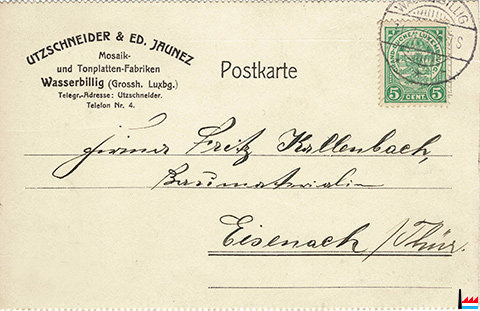 UTZSCHNEIDER & ED. JAUNEZ
Mosaik-
und Tonplatten-Fabriken
Wasserbillig (Grossh. Luxbg.)
Telegr.-Adresse: Utzschneider.
Telefon Nr. 4.
Postkarte
5 CENT. 5
Firma Fritz Kallenbach,
Baumaterialien
Eisenach /Thür.